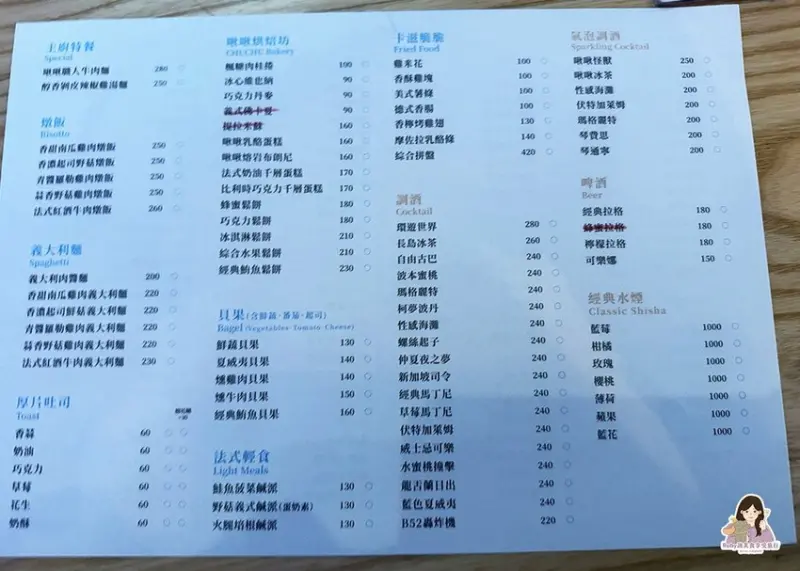 主廚特餐
Special
啾啾職人牛肉麵 280
醇香剝皮辣椒雞湯麵 250
燉飯
Risotto
香甜南瓜雞肉燉飯 250
香濃起司野菇燉飯 250
青醬羅勒雞肉燉飯 250
蒜香野菇雞肉燉飯 250
法式紅酒牛肉燉飯 260
義大利麵
Spaghetti
義大利肉醬麵 200
香甜南瓜雞肉義大利麵 220
香濃起司鮮菇義大利麵 220
青醬羅勒雞肉義大利麵 220
蒜香野菇雞肉義大利麵 220
法式紅酒牛肉義大利麵 230
厚片吐司
Toast
香蒜 60
奶油 60
巧克力 60
草莓 60
花生 60
奶酥 60
啾啾烘焙坊
CHUCHU Bakery
楓糖肉桂捲 100
冰心維也納 90
巧克力丹麥 90
義式佛卡夏 90
提拉米蘇 160
啾啾乳酪蛋糕 160
啾啾熔岩布朗尼 160
法式奶油千層蛋糕 170
比利時巧克力千層蛋糕 170
蜂蜜鬆餅 180
巧克力鬆餅 180
冰淇淋鬆餅 210
綜合水果鬆餅 210
經典鮪魚鬆餅 230
貝果(含鮮蔬·番茄·起司)
Bagel (Vegetables·Tomato·Cheese)
鮮蔬貝果 130
夏威夷貝果 140
燻雞肉貝果 140
燻牛肉貝果 150
經典鮪魚貝果 160
法式輕食
Light Meals
鮭魚菠菜鹹派 130
野菇義式鹹派(蛋奶素) 130
火腿培根鹹派 130
卡滋脆脆
Fried Food
雞米花 100
香酥雞塊 100
美式薯條 100
德式香腸 100
香檸烤雞翅 130
摩佐拉乳酪條 140
綜合拼盤 420
調酒
Cocktail
環遊世界 280
長島冰茶 260
自由古巴 240
波本蜜桃 240
瑪格麗特 240
柯夢波丹 240
性感海灘 240
螺絲起子 240
仲夏夜之夢 240
新加坡司令 240
經典馬丁尼 240
草莓馬丁尼 240
伏特加萊姆 240
威士忌可樂 240
水蜜桃撞擊 240
龍舌蘭日出 240
藍色夏威夷 240
B52轟炸機 220
氣泡調酒
Sparkling Cocktail
啾啾怪獸 250
啾啾冰茶 200
性感海灘 200
伏特加萊姆 200
瑪格麗特 200
琴費思 200
琴通寧 200
啤酒
Beer
經典拉格 180
蜂蜜拉格 180
檸檬拉格 180
可樂娜 150
經典水煙
Classic Shisha
藍莓 1000
柑橘 1000
玫瑰 1000
櫻桃 1000
薄荷 1000
蘋果 1000
藍花 1000